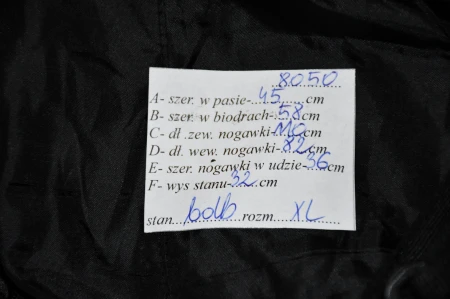 8050
A- szer. w pasie-45cm
B- szer. w biodrach-58cm
C- dł .zew. nogawki-110cm
D- dł. wew. nogawki-82cm
E- szer. nogawki w udzie-36cm
F- wys stanu-32.cm
stan bdb rozm. XL